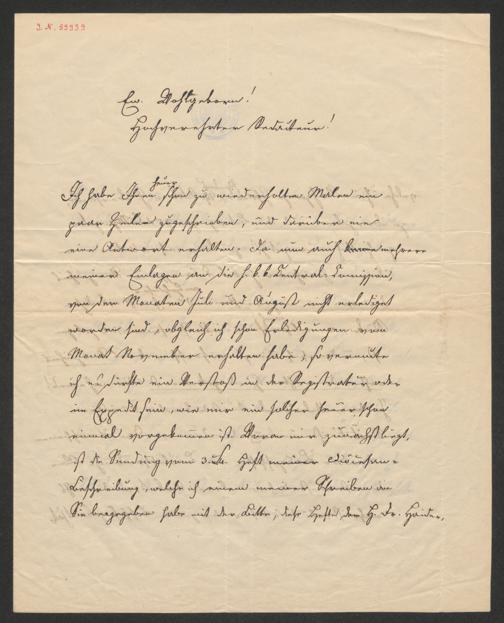 J. N. 53959
Ew. Wohlgeborn!
Hochverehrter Redakteur!
heuer
Ich habe Ihnen schon zu wiederholten Malen ein
paar Zeilen zugeschrieben, und darüber nie
eine Antwort erhalten. Da nun auch mehrere
meiner Einlagen an die h. k. k. Central-Commission,
von den Monaten Juli und August nicht erlediget
worden sind, obgleich ich schon Erledigungen vom
Monat November erhalten habe, so vermute
ich es dürfte ein Verstoß in der Registratur oder
im Expedit sein, wie mir ein solcher heuer schon
einmal vorgekommen ist. Woran mir zunächst liegt,
ist die Sendung vom 3. Heft meiner Diöcesan-
beschreibung, welche ich einem meiner Schreiben an
Sie beygegeben habe mit der Bitte, diese Hefte dem H. Dr. Haider,